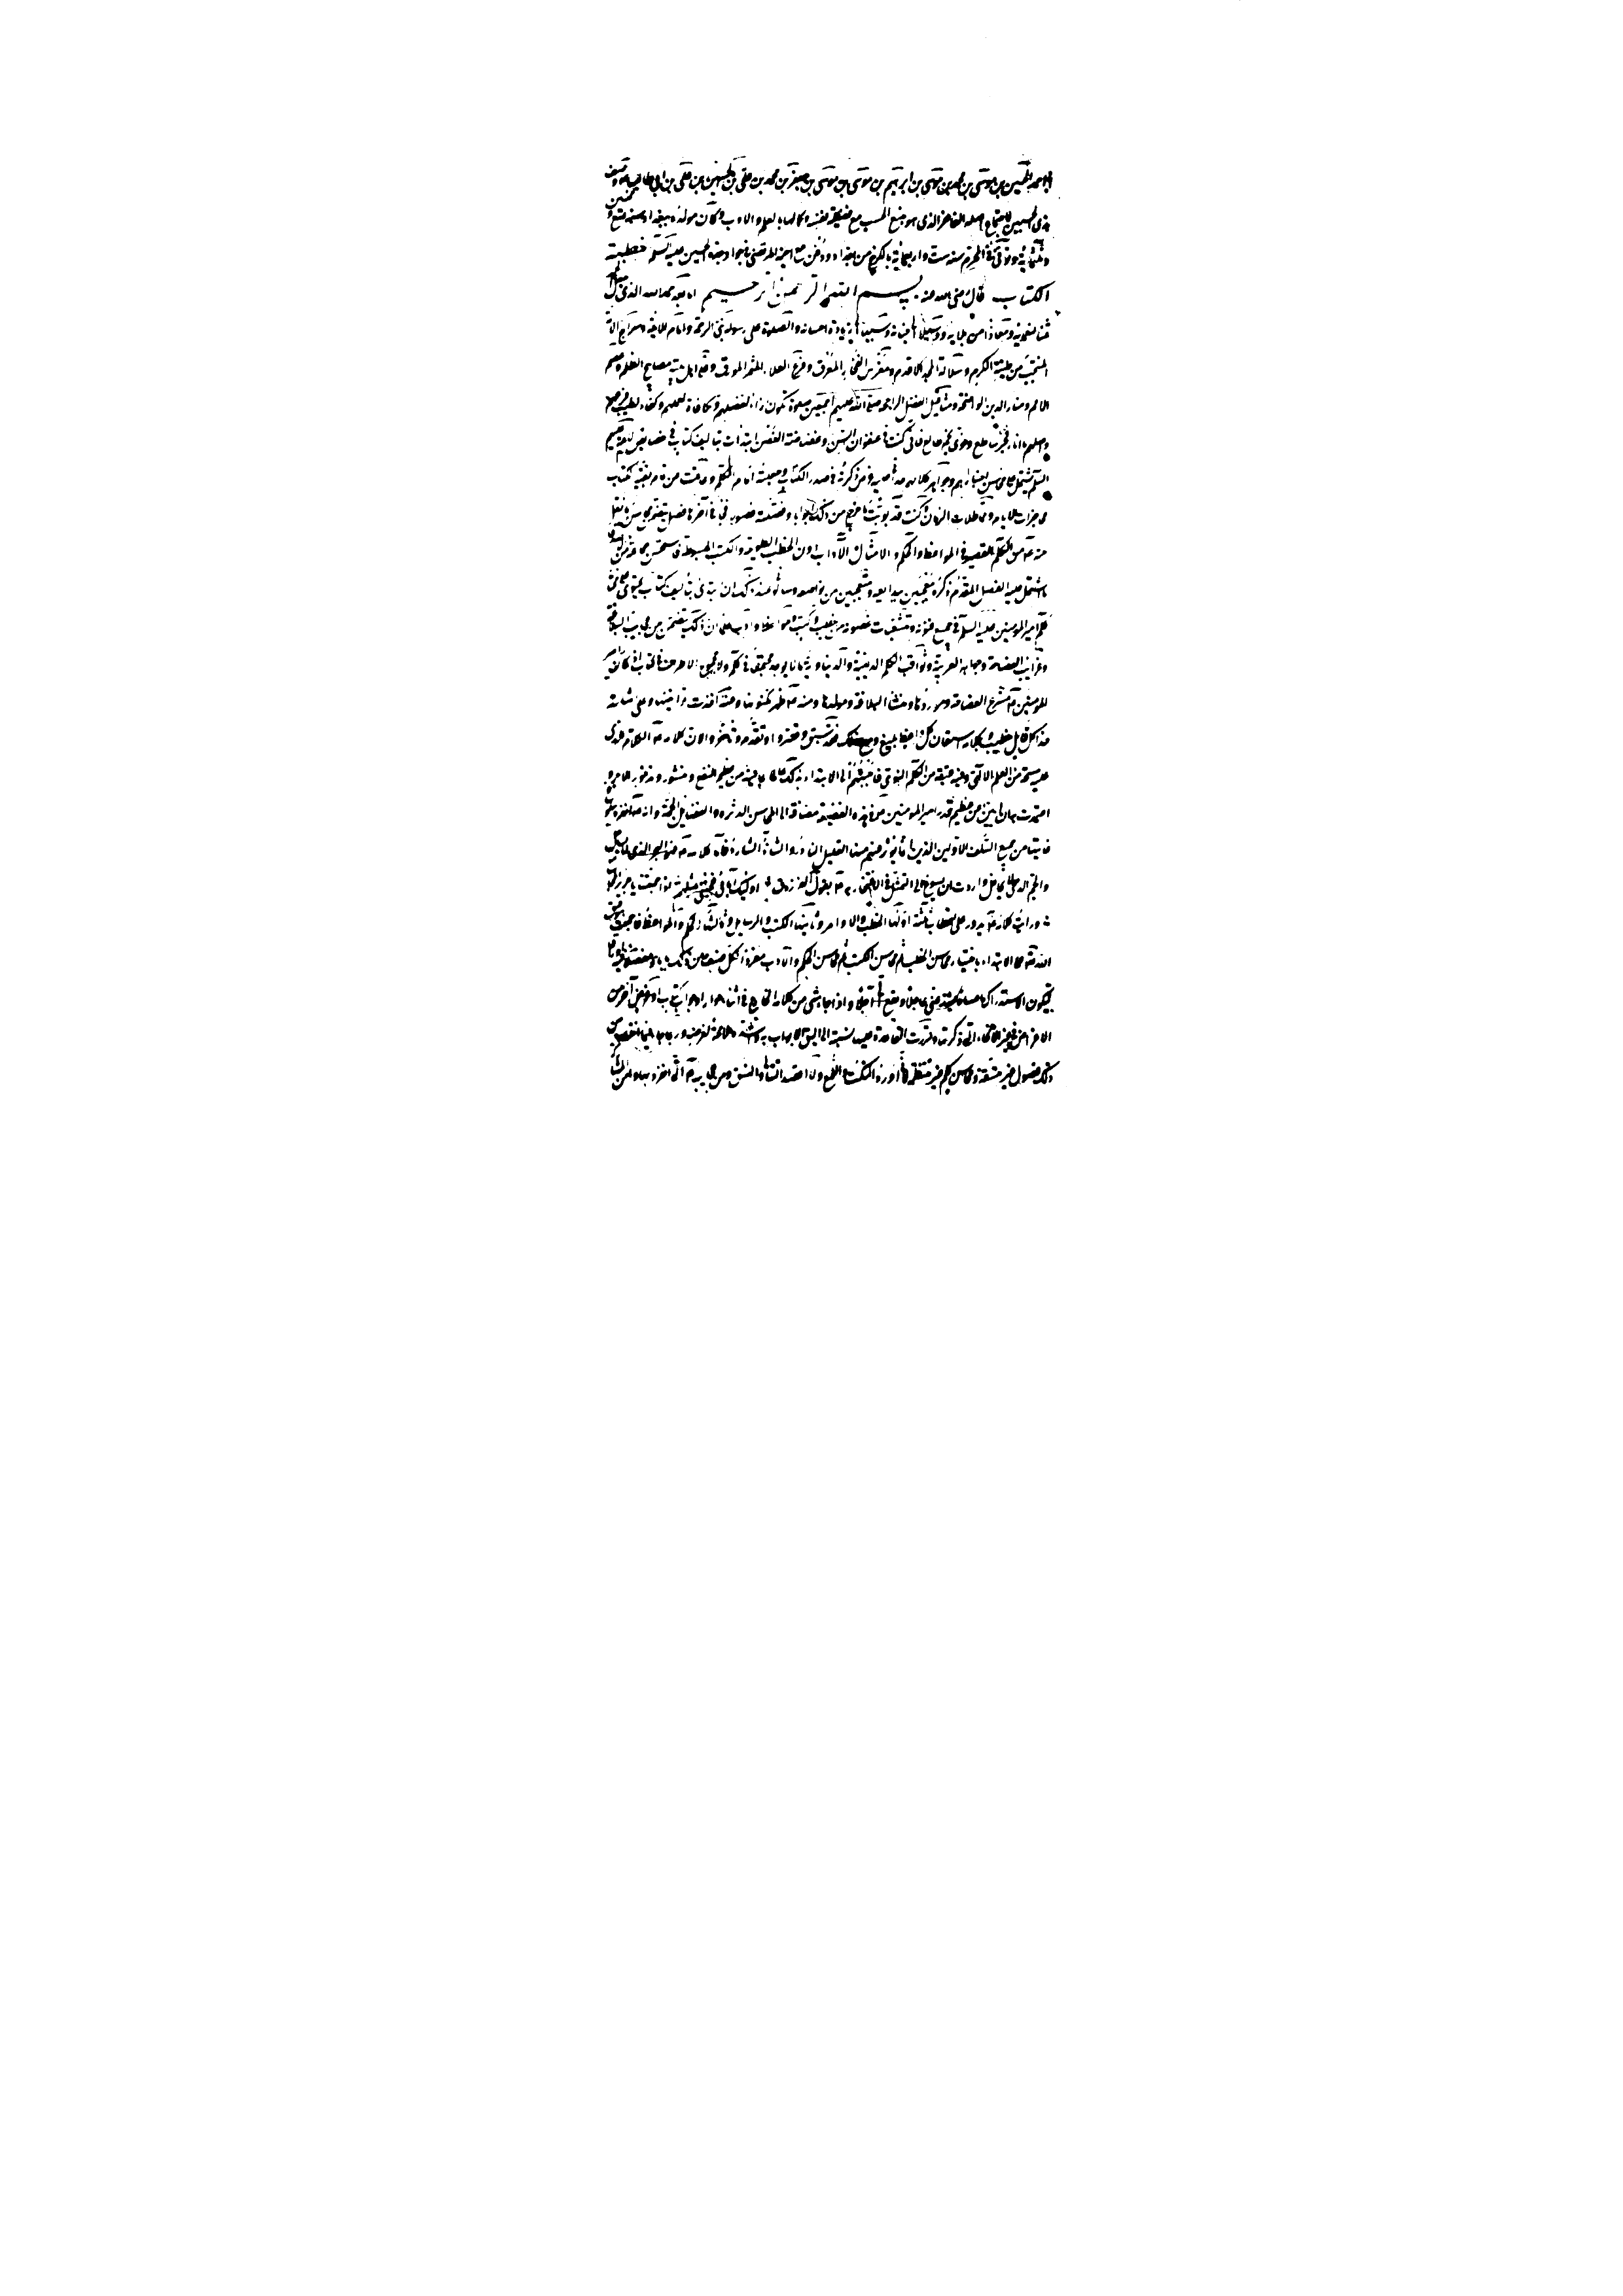 ابى احمد الحسين بن موسى بن محمد بن موسى بن ابرهيم بن موسى بن جعفر بن محمد بن على بن الحسين بن على بن ابى طالب
ذى الحسبين لاجتماع اصله الفاخر الذى هو منبع الحسب مع فضيلة نفسه وكمالها بالعلم والادب وكان مولده ببغداد سنة تسع وخمسين
وثلثمائة وتوفى فى المحرم سنة ست واربعمائة بالكرخ من بغداد ودفن مع اخيه المرتضى فى جوار جده الحسين عليه السلم خطبة
الكتاب قال رضى الله عنه بسم الله الرحمن الرحيم اما بعد حمد الله الذى جعل الحمد
ثمنا لنعمائه ومعاذا من بلائه ووسيلا الى جنانه وسببا لزيادة احسانه والصلوة على رسوله نبى الرحمة وامام الائمة وسراج الامة
المنتخب من طينة الكرم وسلالة المجد الاقدم ومغرس الفخار المعرق وفرع العلاء المثمر المورق وعلى اهل بيته مصابيح الظلم وعصم
الامم ومنار الدين الواضحة ومثاقيل الفضل الراجحة صلى الله عليهم اجمعين صلوة تكون ازاء لفضلهم ومكافاة لعملهم وكفاء لطيب فرعهم
واصلهم ما انار فجر ساطع وخوى نجم طالع فانى كنت فى عنفوان السن وغضاضة الغصن ابتدات بتاليف كتاب فى خصايص الائمة عليهم
السلم يشتمل على محاسن اخبارهم وجواهر كلامهم حدانى عليه غرض ذكرته فى صدر الكتاب وجعلته امام الكلم وعاقت عن اتمام بقية الكتاب
محاجزات الايام ومماطلات الزمان وكنت قد بوبت ما خرج من ذلك ابوابا وفصلته فصولا فجاء فى آخرها فصل يتضمن محاسن ما نقل
عنه عم من الكلم القصير فى المواعظ والحكم والامثال والآداب دون الخطب الطويلة والكتب المبسوطة فاستحسن جماعة من الاصدقاء
ما اشتمل عليه الفصل المقدم ذكره معجبين ببدايعه ومتعجبين من نواصعه وسالونى عند ذلك ان ابتدئ بتاليف كتاب يحتوى على مختار
كلم امير المومنين عليه السلم فى جميع فنونه ومتشعبات غصونه من خطب وكتب ومواعظ وادب علما ان ذلك يتضمن من عجايب البلاغة
وغرايب الفصاحة وجواهر العربية وثواقب الكلم الدينية والدنياوية ما لا يوجد مجتمعا فى كلام ولا مجموع الاطراف فى كتاب اذ كان امير
المومنين عم مشرع الفصاحة وموردها ومنشأ البلاغة ومولدها ومنه عم ظهر مكنونها وعنه اخذت قوانينها وعلى امثلته
حذا كل قايل خطيب وبكلامه استعان كل واعظ بليغ ومع ذلك فقد سبق وقصروا وتقدم وتأخروا لان كلامه عم الكلام الذى
عليه مسحة من العلم الالهى وفيه عبقة من الكلام النبوى فاجبتهم الى الابتداء بذلك عالما بما فيه من عظيم النفع ومنشور الذكر ومذخور الاجر و
اعتمدت به ان ابين من عظيم قدر امير المومنين عم فى هذه الفضيلة مضافة الى المحاسن الدثرة والفضايل الجمة وانه عم انفرد ببلوغ
غايتها من جميع السلف الاولين الذين انما يؤثر عنهم منها القليل النادر والشاذ الشارد فاما كلامه عم فهو البحر الذى لا يساجل
والجم الذى لا يحافل واردت ان يسوغ لى التمثل فى الافتخار به عم بقول الفرزدق اولئك آبائى فجئنى بمثلهم اذا جمعتنا يا جرير المجامع
ورايت كلامه عم يدور على اقطاب ثلثة اولها الخطب والاوامر وثانيها الكتب والرسايل وثالثها الحكم والمواعظ فاجمعت بتوفيق
الله تعالى على الابتداء باختيار محاسن الخطب ثم محاسن الكتب ثم محاسن الحكم والآداب مفردا لكل صنف من ذلك بابا ومفصلا فيه اوراقا
لتكون لاستدراك ما عساه يشذ عنى عاجلا ويقع الى آجلا واذا جاء شى من كلامه الخارج فى اثناء حوار او جواب كتاب او غرض آخر من
الاغراض فى غير الانحاء التى ذكرتها وقررت القاعدة عليها نسبته الى اليق الابواب به واشدها ملامحة لغرضه وربما جاء فيما اختاره من
ذلك فصول غير متسقة ومحاسن كلم غير منتظمة لانى اورد النكت واللمع ولا اقصد التتالى والنسق ومن عجايبه عم التى انفرد بها وامن المشاركة